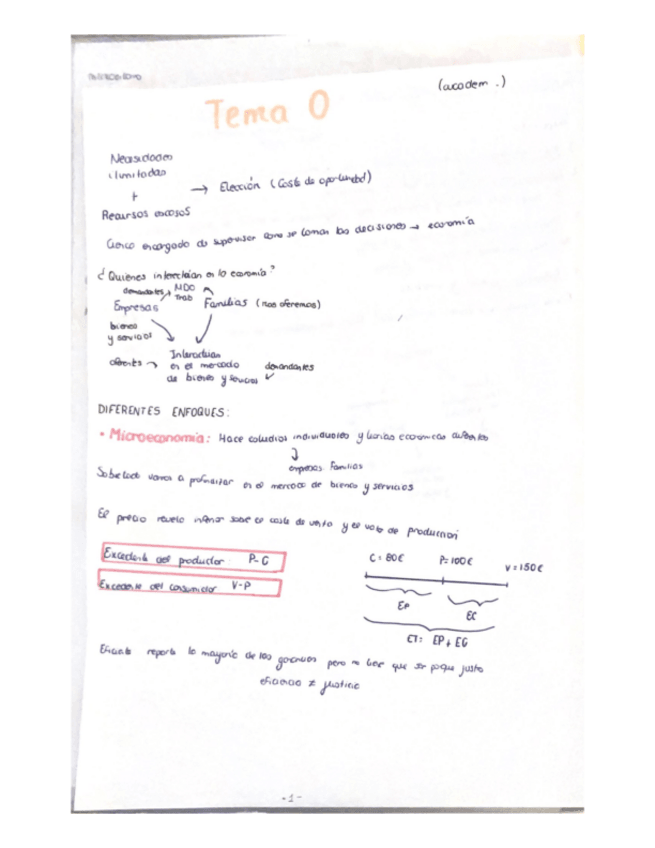 (academ.)
Tema 0
Necesidades
ilimitadas
+
→ Elección (Coste de oportunidad)
Recursos escasos
Ciencia encargada de supervisar como se toman las decisiones → economía
¿Quiénes interactúan en la economía?
demandantes → MDO
Trab
Empresas
Familias (nos oferemos)
bienes
y servicios
Interactúan
oferentes → en el mercado demandantes
de bienes y servicios
DIFERENTES ENFOQUES:
• Microeconomía: Hace estudios individuales y teorías económicas diferentes
empresas familias
Sobretodo vamos a profundizar en el mercado de bienes y servicios
El precio revela sobre el coste de y el de producción
Excedente del productor: P-C
Excedente del consumidor V-P
C = 80€ P = 100€ V = 150€
EP
EC
ET: EP + EC
Eficiente reporta la mayoría de las ganancias pero no tiene que ser justo
eficiencia ≠ justicia
-1-